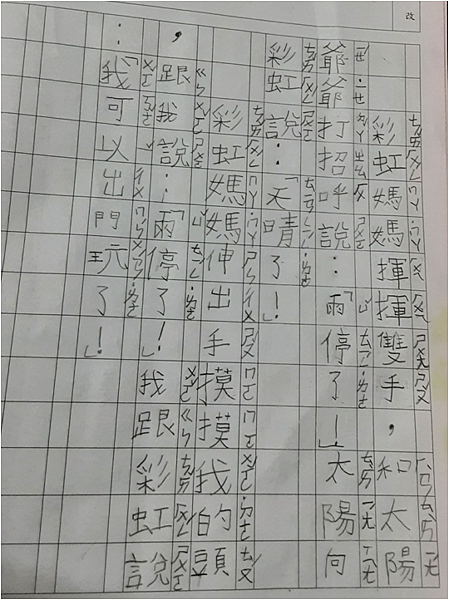 改
彩虹媽媽揮揮雙手，和太陽
爺爺打招呼說：「雨停了！」太陽向
彩虹說：「天晴了！」
彩虹媽媽伸出手摸摸我的頭
，跟我說：「雨停了！」我跟彩虹說
：「我可以出門玩了！」